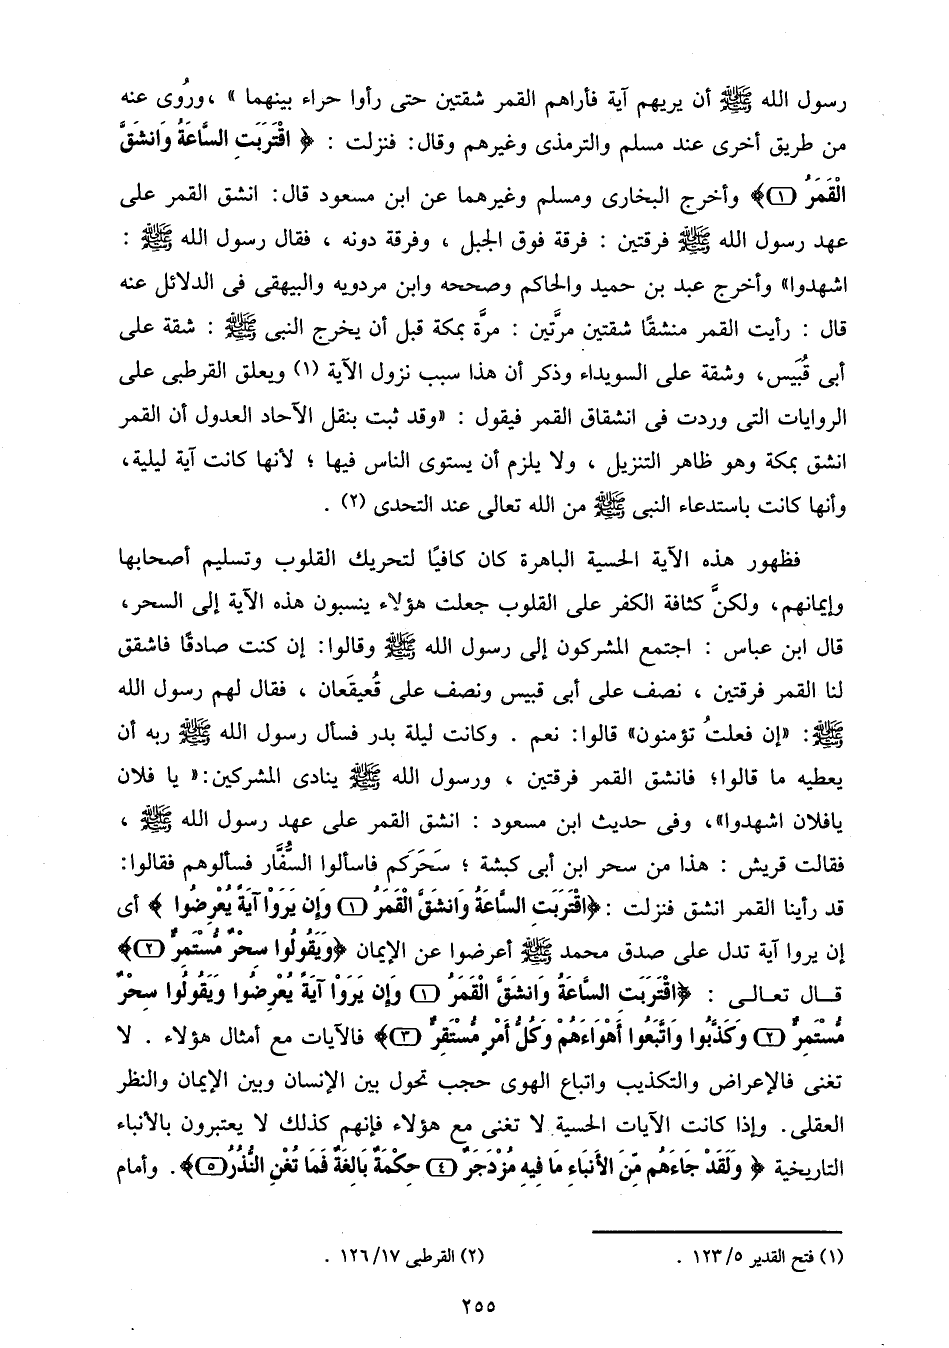 رسول الله ﷺ أن يريهم آية فأراهم القمر شقتين حتى رأوا حراء بينهما » ،ورُوى عنه
من طريق أخرى عند مسلم والترمذى وغيرهم وقال: فنزلت : ﴿ اقْتَرَبَتِ السَّاعَةُ وَانشَقَّ
الْقَمَرُ (١)﴾ وأخرج البخارى ومسلم وغيرهما عن ابن مسعود قال: انشق القمر على
عهد رسول الله ﷺ فرقتين : فرقة فوق الجبل ، وفرقة دونه ، فقال رسول الله ﷺ :
اشهدوا» وأخرج عبد بن حميد والحاكم وصححه وابن مردويه والبيهقى فى الدلائل عنه
قال : رأيت القمر منشقًا شقتين مرَّتين : مرَّة بمكة قبل أن يخرج النبى ﷺ : شقة على
أبى قُبَيس، وشقة على السويداء وذكر أن هذا سبب نزول الآية (١) ويعلق القرطبى على
الروايات التى وردت فى انشقاق القمر فيقول : «وقد ثبت بنقل الآحاد العدول أن القمر
انشق بمكة وهو ظاهر التنزيل ، ولا يلزم أن يستوى الناس فيها ؛ لأنها كانت آية ليلية،
وأنها كانت باستدعاء النبى ﷺ من الله تعالى عند التحدى (٢) .
فظهور هذه الآية الحسية الباهرة كان كافيًا لتحريك القلوب وتسليم أصحابها
وإيمانهم، ولكنَّ كثافة الكفر على القلوب جعلت هؤلاء ينسبون هذه الآية إلى السحر،
قال ابن عباس : اجتمع المشركون إلى رسول الله ﷺ وقالوا: إن كنت صادقًا فاشقق
لنا القمر فرقتين ، نصف على أبى قبيس ونصف على قُعيقَعان ، فقال لهم رسول الله
ﷺ: «إن فعلتُ تؤمنون» قالوا: نعم . وكانت ليلة بدر فسأل رسول الله ﷺ ربه أن
يعطيه ما قالوا؛ فانشق القمر فرقتين ، ورسول الله ﷺ ينادى المشركين:« يا فلان
يافلان اشهدوا»، وفى حديث ابن مسعود : انشق القمر على عهد رسول الله ﷺ ،
فقالت قريش : هذا من سحر ابن أبى كبشة ؛ سَحَركم فاسألوا السُّفَّار فسألوهم فقالوا:
قد رأينا القمر انشق فنزلت :﴿اقْتَرَبَتِ السَّاعَةُ وَانشَقَّ الْقَمَرُ (١) وَإِن يَرَوْا آيَةً يُعْرِضُوا ﴾ أى
إن يروا آية تدل على صدق محمد ﷺ أعرضوا عن الإيمان ﴿وَيَقُولُوا سِحْرٌ مُّسْتَمِرٌّ (٢)﴾
قــال تعـالـى : ﴿اقْتَرَبَتِ السَّاعَةُ وَانشَقَّ الْقَمَرُ (١) وَإِن يَرَوْا آيَةً يُعْرِضُوا وَيَقُولُوا سِحْرٌ
مُّسْتَمِرٌّ (٢) وَكَذَّبُوا وَاتَّبَعُوا أَهْوَاءَهُمْ وَكُلُّ أَمْرٍ مُّسْتَقِرٌّ (٣)﴾ فالآيات مع أمثال هؤلاء . لا
تغنى فالإعراض والتكذيب واتباع الهوى حجب تحول بين الإنسان وبين الإيمان والنظر
العقلى. وإذا كانت الآيات الحسية لا تغنى مع هؤلاء فإنهم كذلك لا يعتبرون بالأنباء
التاريخية ﴿ وَلَقَدْ جَاءَهُم مِّنَ الأَنبَاءِ مَا فِيهِ مُزْدَجَرٌ (٤) حِكْمَةٌ بَالِغَةٌ فَمَا تُغْنِ النُّذُرُ(٥)﴾. وأمام
(١) فتح القدير ١٢٣/٥ .
(٢) القرطبى ١٢٦/١٧ .
٢٥٥